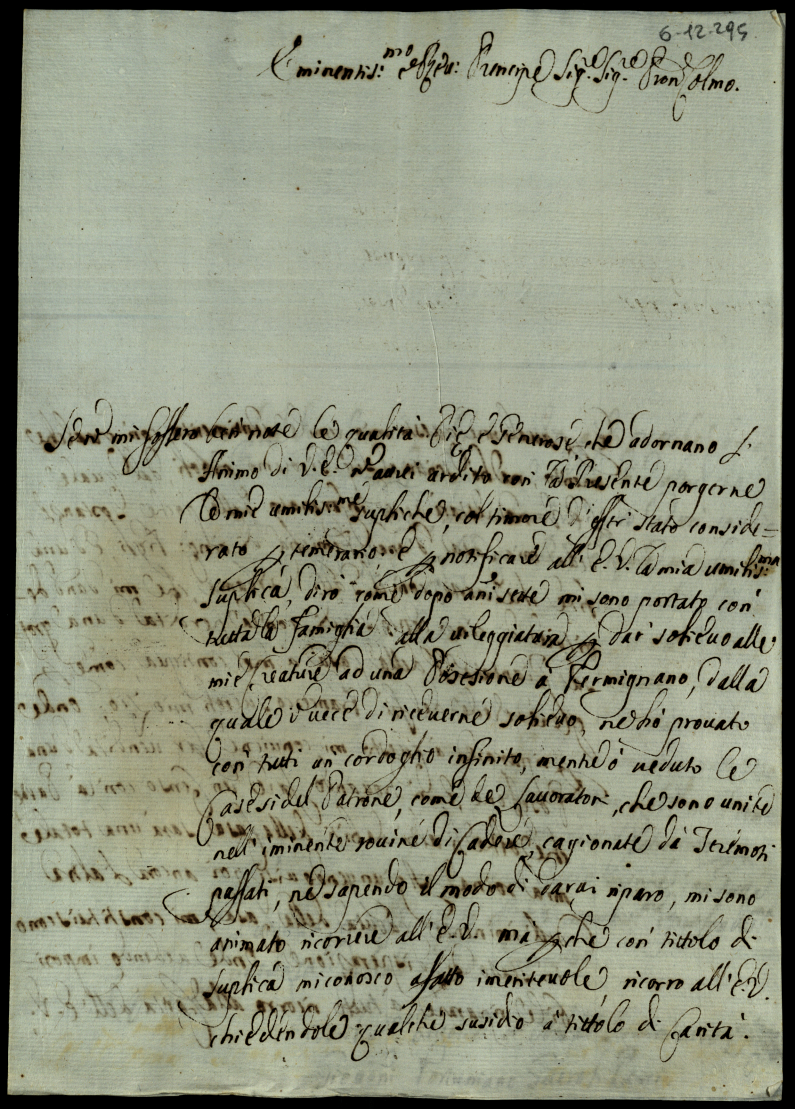 6-12-295
Eminentis:mo e Rev: Principe Sig.re Sig.re Pron Colmo.
Se ne mi fossero ben note le qualità Pie e Generose che adornano l'
Animo di V.E. non aurei ardito con la Presente porgerne
le mie umilis:me supliche, col timore d'esser stato conside=
rato temerario, e notificare all' E.V. la mia umilis:ma
suplica, dirò come dopo ani sette mi sono portato con
tutta la Famiglia alla vileggiatura dar solievo alle
mie Creature ad una Posesione a Fermignano, dalla
quale in vece di riceverne solievo, ne hò provato
con tutti un cordoglio infinito, mentre ò veduto le
Case si del Patrone, come de Lavoratori, che sono unite
nell' iminente rovine di Cadere, cagionate dà Teremoti
passati, ne sapendo il modo di darai riparo, mi sono
animato ricorrere all' E.V. mà che con tittolo di
suplica mi conosco affatto imeritevole ricorro all' E.V.
chiedendole qualche susidio à tittolo di Carità.